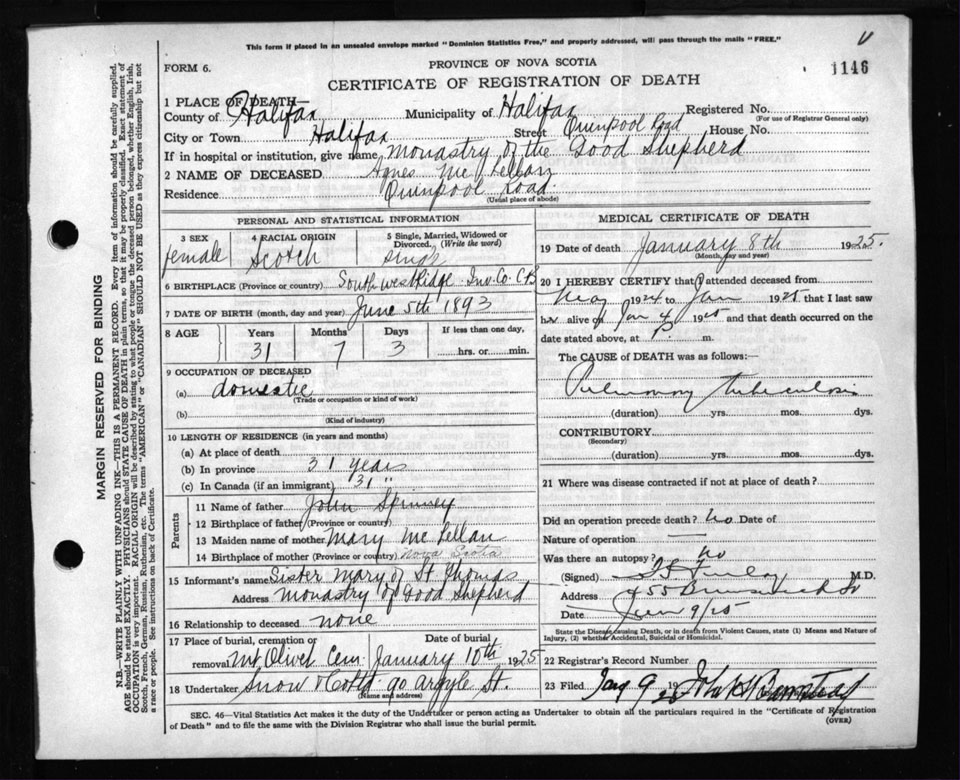 This form if placed in an unsealed envelope marked "Dominion Statistics Free," and properly addressed, will pass through the mails "FREE."
FORM 6.
PROVINCE OF NOVA SCOTIA
1146
CERTIFICATE OF REGISTRATION OF DEATH
1 PLACE OF DEATH—
County of Halifax Municipality of Halifax Registered No.
(For use of Registrar General only)
City or Town Halifax Street Quinpool Road House No.
If in hospital or institution, give name Monastry of the Good Shepherd
2 NAME OF DECEASED Agnes Mc Lellan
Residence Quinpool Road
(Usual place of abode)
PERSONAL AND STATISTICAL INFORMATION
3 SEX
female
4 RACIAL ORIGIN
Scotch
5 Single, Married, Widowed or Divorced. (Write the word)
single
6 BIRTHPLACE (Province or country) South west Ridge Inv. Co. C.B
7 DATE OF BIRTH (month, day and year) June 5th 1893
8 AGE Years Months Days If less than one day,
31 7 3 hrs. or min.
9 OCCUPATION OF DECEASED
(a) domestic
(Trade or occupation or kind of work)
(b)
(Kind of industry)
10 LENGTH OF RESIDENCE (in years and months)
(a) At place of death
(b) In province 31 years
(c) In Canada (if an immigrant) 31 "
Parents
11 Name of father John Spinney
12 Birthplace of father (Province or country)
13 Maiden name of mother Mary Mc Lellan
14 Birthplace of mother (Province or country) Nova Scotia
15 Informant's name Sister Mary of St. Thomas
Address Monastry of Good Shepherd
16 Relationship to deceased none
17 Place of burial, cremation or removal Mt. Olivet Cem. Date of burial January 10th 1925
18 Undertaker Snow & Co Ltd 90 Argyle St.
(Name and address)
MEDICAL CERTIFICATE OF DEATH
19 Date of death January 8th 1925.
(Month, day and year)
20 I HEREBY CERTIFY that I attended deceased from
May 1924 to Jan 1925 that I last saw
her alive on Jan 4 1925 and that death occurred on the
date stated above, at P. m.
The CAUSE of DEATH was as follows:—
Pulmonary Tuberculosis
(duration) yrs. mos. dys.
CONTRIBUTORY
(Secondary)
(duration) yrs. mos. dys.
21 Where was disease contracted if not at place of death?
Did an operation precede death? No Date of
Nature of operation —
Was there an autopsy? No
(Signed) M.D.
Address 455 Brunswick St
Date Jan 9/25
State the Disease causing Death, or in death from Violent Causes, state (1) Means and Nature of
Injury, (2) whether Accidental, Suicidal or Homicidal.
22 Registrar's Record Number
23 Filed Jan 9 19
SEC. 46—Vital Statistics Act makes it the duty of the Undertaker or person acting as Undertaker to obtain all the particulars required in the "Certificate of Registration
of Death" and to file the same with the Division Registrar who shall issue the burial permit. (OVER)
MARGIN RESERVED FOR BINDING
N.B.—WRITE PLAINLY WITH UNFADING INK—THIS IS A PERMANENT RECORD. Every item of information should be carefully supplied.
AGE should be stated EXACTLY. PHYSICIANS should STATE CAUSE OF DEATH in plain terms, so that it may be properly classified. Exact statement of
OCCUPATION is very important. RACIAL ORIGIN will be described by stating to what people or tongue the deceased person belonged, whether English, Irish,
Scotch, French, German, Russian, Ruthenian, etc. The terms "AMERICAN" or "CANADIAN" SHOULD NOT BE USED as they express citizenship but not
a race or people. See instructions on back of Certificate.